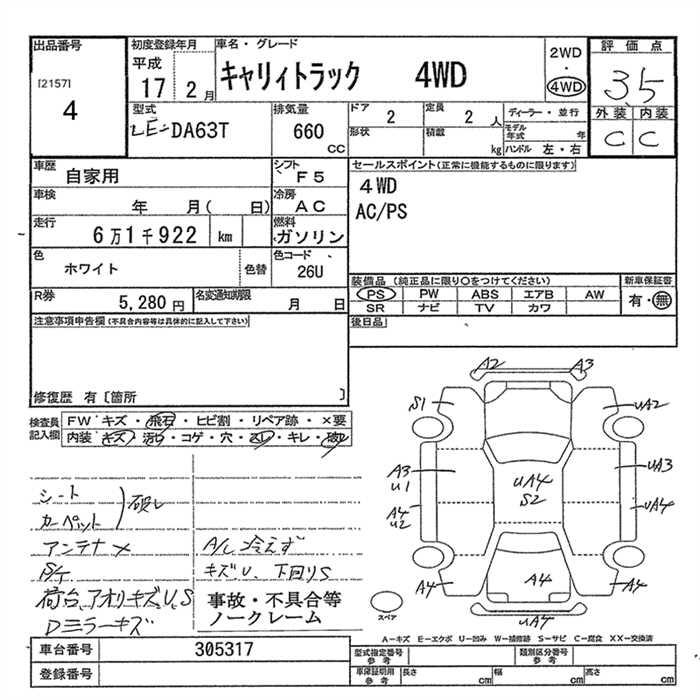 出品番号
[2157]
4
初度登録年月
平成
17 2月
車名・グレード
キャリィトラック 4WD
2WD
・
4WD
評価点
3.5
外装 内装
C C
型式
LE-DA63T
排気量
660 CC
ドア 2
定員 2 人
形状
積載 kg
ディーラー・並行
モデル年式 年
ハンドル 左・右
車歴 自家用
シフト F5
車検 年 月( 日)
冷房 AC
走行 6万1千922 km
燃料 ガソリン
色 ホワイト 色替
色コード 26U
R券 5,280円
名変通知期限 月 日
セールスポイント(正常に機能するものに限ります)
4WD
AC/PS
装備品(純正品に限り○をつけてください)
新車保証書
PS PW ABS エアB AW
有・無
SR ナビ TV カワ
後日品
注意事項申告欄(不具合内容等は具体的に記入して下さい)
修復歴 有〔箇所 〕
検査員記入欄
FW キズ・飛石・ヒビ割・リペア跡・×要
内装 キズ・汚れ・コゲ・穴・スレ・キレ・破れ
シート
カーペット
破れ
アンテナ×
A/C 冷えず
キズU、下回りS
荷台、アオリキズ、U、S
Dミラーキズ
事故・不具合等
ノークレーム
A2 A3
S1 UA2
A3 U1
UA3
A4 U2
UA4
UA4
S2
A4 A4 A4
UA4
スペア
A−キズ E−エクボ U−凹み W−補修跡 S−サビ C−腐食 XX−交換済
車台番号 305317
型式指定番号 参考
類別区分番号 参考
登録番号
車庫証明用 参考
長さ cm 幅 cm 高さ cm